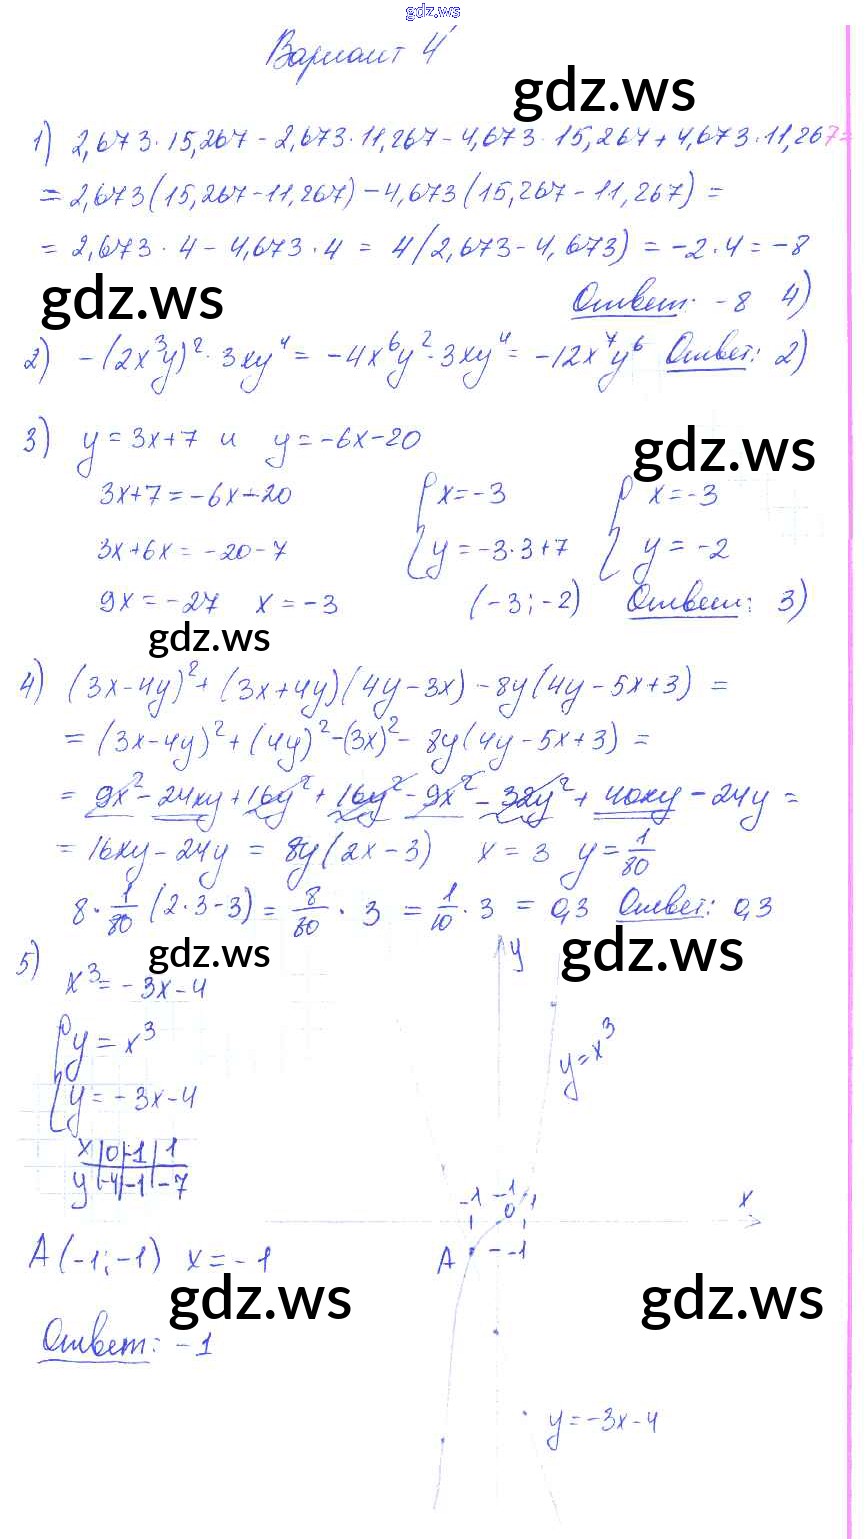 gdz.ws
Вариант 4
gdz.ws
1) 2,673·15,267 - 2,673·11,267 - 4,673·15,267 + 4,673·11,267 =
= 2,673(15,267 - 11,267) - 4,673(15,267 - 11,267) =
= 2,673·4 - 4,673·4 = 4(2,673 - 4,673) = -2·4 = -8
gdz.ws
Ответ: -8 4)
2) -(2x³y)²·3xy⁴ = -4x⁶y²·3xy⁴ = -12x⁷y⁶ Ответ: 2)
3) y = 3x+7 и y = -6x-20
gdz.ws
3x+7 = -6x-20 { x = -3 { x = -3
3x+6x = -20-7 y = -3·3+7 y = -2
9x = -27 x = -3 (-3; -2) Ответ: 3)
gdz.ws
4) (3x-4y)² + (3x+4y)(4y-3x) - 8y(4y-5x+3) =
= (3x-4y)² + (4y)² - (3x)² - 8y(4y-5x+3) =
= 9x² - 24xy + 16y² + 16y² - 9x² - 32y² + 40xy - 24y =
= 16xy - 24y = 8y(2x-3) x = 3 y = 1/80
8·1/80 (2·3-3) = 8/80 · 3 = 1/10 · 3 = 0,3 Ответ: 0,3
5) gdz.ws gdz.ws
y
x³ = -3x-4
{ y = x³
y = x³
y = -3x-4
x | 0 | -1 | 1
y | -4 | -1 | -7
-1 -1 0 1 x
A(-1; -1) x = -1
A -1
gdz.ws gdz.ws
Ответ: -1
y = -3x-4